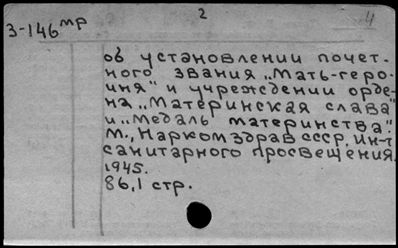 2
4
3-146 мр
об установлении почет-
ного звания „Мать-геро-
иня" и учреждении орде-
на „Материнская слава"
и „Медаль материнства".
М., Наркомздрав СССР, Ин-т
санитарного просвещения,
1945.
86,1 стр.